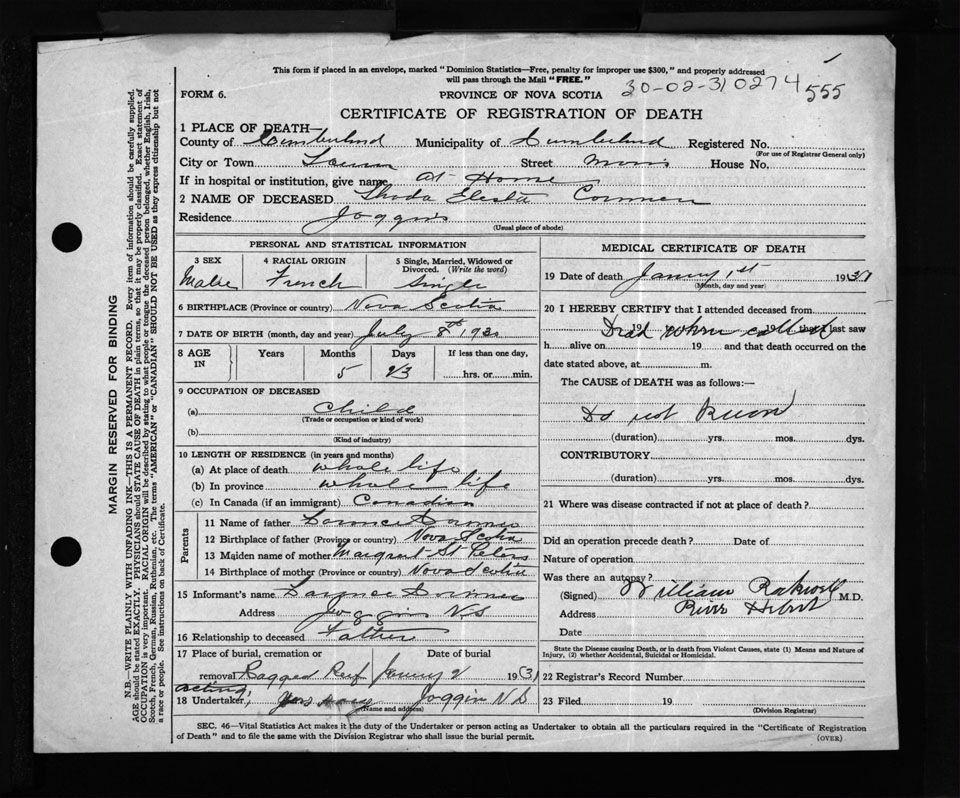 This form if placed in an envelope, marked "Dominion Statistics—Free, penalty for improper use $300," and properly addressed
will pass through the Mail "FREE."
FORM 6.
PROVINCE OF NOVA SCOTIA
30-02-310274
555
CERTIFICATE OF REGISTRATION OF DEATH
1 PLACE OF DEATH—
County of Cumberland Municipality of Cumberland Registered No.
(For use of Registrar General only)
City or Town Street House No.
If in hospital or institution, give name At Home
2 NAME OF DECEASED
Residence Joggins
(Usual place of abode)
PERSONAL AND STATISTICAL INFORMATION
3 SEX
Male
4 RACIAL ORIGIN
French
5 Single, Married, Widowed or
Divorced. (Write the word)
Single
6 BIRTHPLACE (Province or country) Nova Scotia
7 DATE OF BIRTH (month, day and year) July 8th 1930
8 AGE
IN
Years Months Days If less than one day,
5 23 hrs. or min.
9 OCCUPATION OF DECEASED
(a) Child
(Trade or occupation or kind of work)
(b)
(Kind of industry)
10 LENGTH OF RESIDENCE (in years and months)
(a) At place of death whole life
(b) In province whole life
(c) In Canada (if an immigrant) Canadian
Parents
11 Name of father
12 Birthplace of father (Province or country) Nova Scotia
13 Maiden name of mother Margret St Peters
14 Birthplace of mother (Province or country) Nova Scotia
15 Informant's name
Address Joggins N.S
16 Relationship to deceased Father
17 Place of burial, cremation or Date of burial
removal Ragged Reef 2 193
acting
18 Undertaker, Joggin N S
(Name and address)
MEDICAL CERTIFICATE OF DEATH
19 Date of death 1st 1931
(Month, day and year)
20 I HEREBY CERTIFY that I attended deceased from
19 19 that I last saw
Dead when called
h alive on 19 and that death occurred on the
date stated above, at m.
The CAUSE of DEATH was as follows:—
Do not Know
(duration) yrs. mos. dys.
CONTRIBUTORY
(duration) yrs. mos. dys.
21 Where was disease contracted if not at place of death?
Did an operation precede death? Date of
Nature of operation
Was there an autopsy?
(Signed) William Rockwell M.D.
Address River Hebert
Date
State the Disease causing Death, or in Death from Violent Causes, state (1) Means and Nature of
Injury, (2) whether Accidental, Suicidal or Homicidal.
22 Registrar's Record Number
23 Filed 19
(Division Registrar)
SEC. 46—Vital Statistics Act makes it the duty of the Undertaker or person acting as Undertaker to obtain all the particulars required in the "Certificate of Registration
of Death" and to file the same with the Division Registrar who shall issue the burial permit.
(OVER)
MARGIN RESERVED FOR BINDING
N.B.—WRITE PLAINLY WITH UNFADING INK—THIS IS A PERMANENT RECORD. Every item of information should be carefully supplied.
AGE should be stated EXACTLY. PHYSICIANS should STATE CAUSE OF DEATH in plain terms, so that it may be properly classified. Exact statement of
OCCUPATION is very important. RACIAL ORIGIN will be described by stating to what people or tongue the deceased person belonged, whether English, Irish,
Scotch, French, German, Russian, Ruthenian, etc. The terms "AMERICAN" or "CANADIAN" SHOULD NOT BE USED as they express citizenship but not
a race or people. See instructions on back of Certificate.